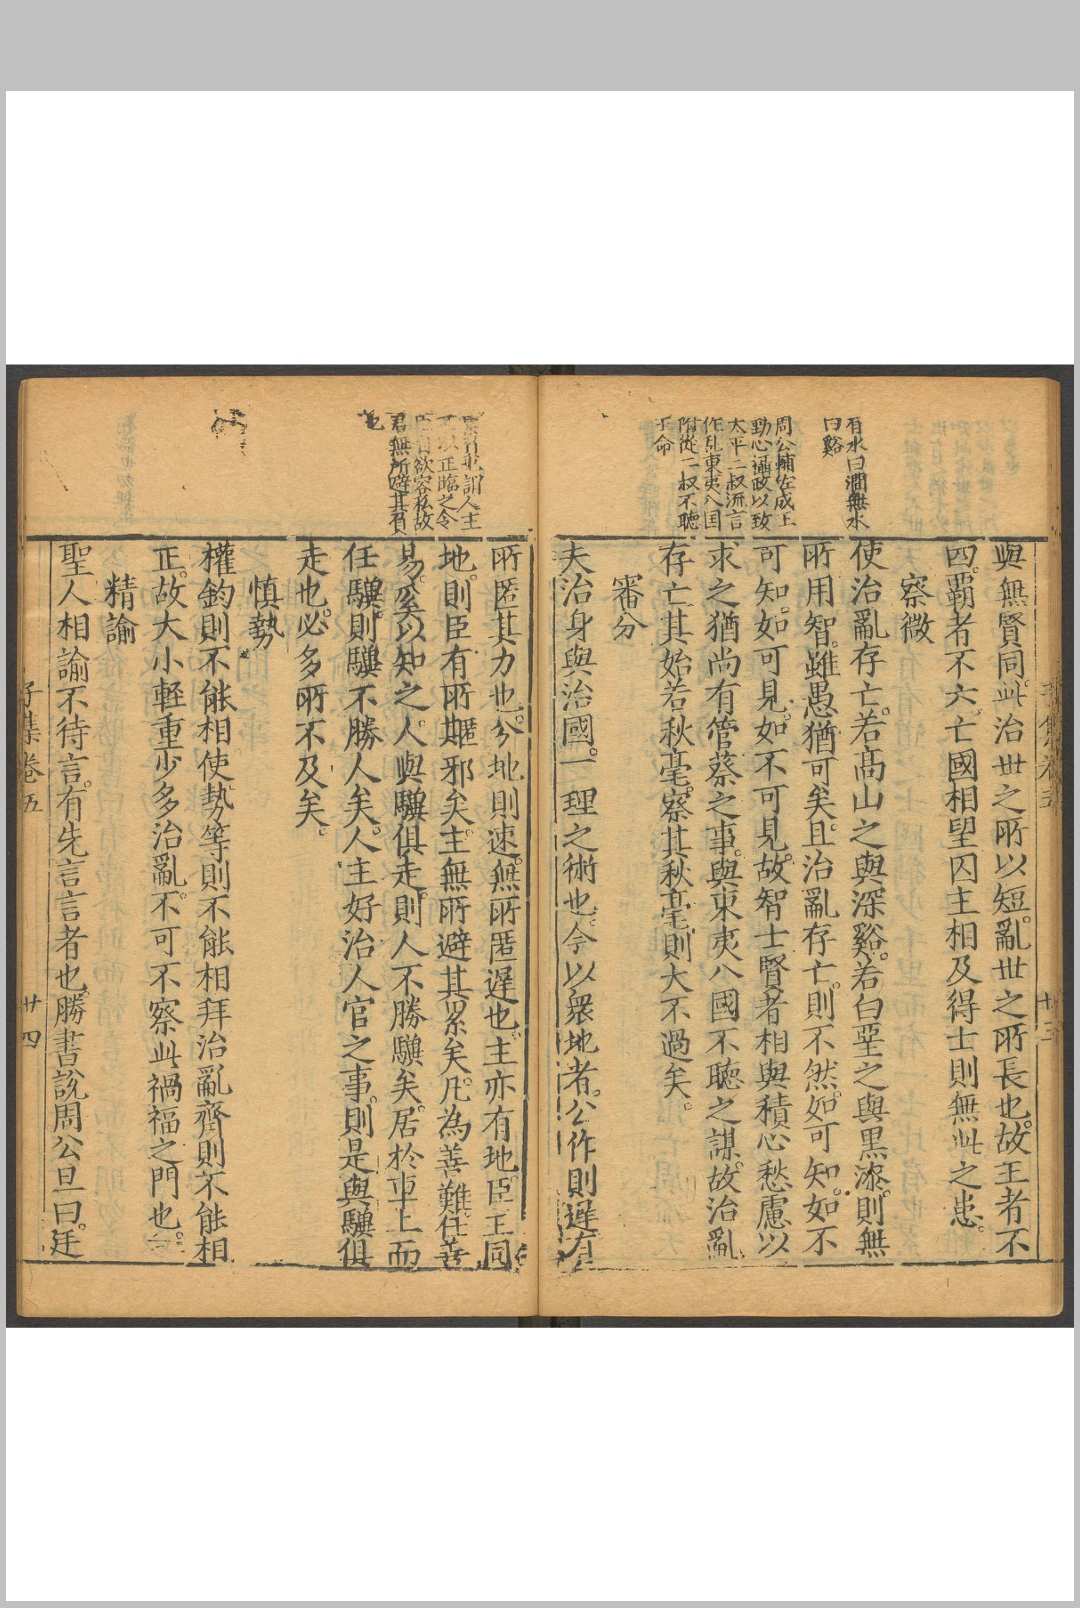 有水曰澗無水
曰谿
周公補佐成王
勤心攝政以致
太平二叔流言
作乱東夷八国
附從二叔不聴
王命
與無賢同此治世之所以短亂世之所長也故王者不
四霸者不六亡國相望囚主相及得士則無此之患
察微
使治亂存亡若高山之與深谿若白堊之與黒漆則無
所用智雖愚猶可矣且治亂存亡則不然如可知如不
可知如可見如不可見故智士賢者相與積心愁慮以
求之猶尚有管蔡之事與東夷八國不聴之謀故治亂
存亡其始若秋毫察其秋毫則大不過矣
審分
夫治身與治國一理之術也今以衆地者公作則遲有
人主
以正臨之令
臣欲容私故
君無所避其負
也
所匿其力也分地則速無所匿遲也主亦有地臣主同
地則臣有所匿邪矣主無所避其累矣凡為善難任善
易奚以知之人與驥俱走則人不勝驥矣居於車上而
任驥則驥不勝人矣人主好治人官之事則是與驥俱
走也必多所不及矣
慎勢
權鈞則不能相使勢等則不能相拜治亂齊則不能相
正故大小輕重少多治亂不可不察此禍福之門也
精諭
聖人相諭不待言有先言言者也勝書說周公旦曰廷
子集卷五
廿四